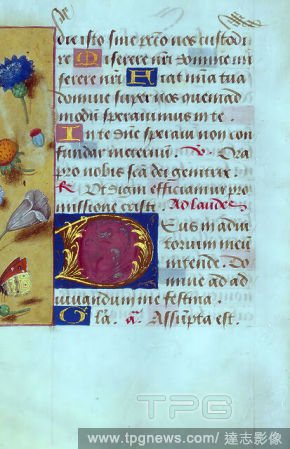 die isto sine pctō nos custodi
re Miserere nr̄i domine mi
serere nr̄i Fiat mīa tua
domine super nos quemad
modū sperauimus in te.
In te dn̄e speraui non con
fundar in eternū. v. Ora
pro nobis scā dei genitrix.
R. Ut digni efficiamur pro
missione cristi. Ad laudes
Deus in adiu
torium meū
intende. Do
mine ad ad
iuuandum me festina.
Glā. a. Assūpta est.
TPG
www.tpgnews.com/ 達志影像